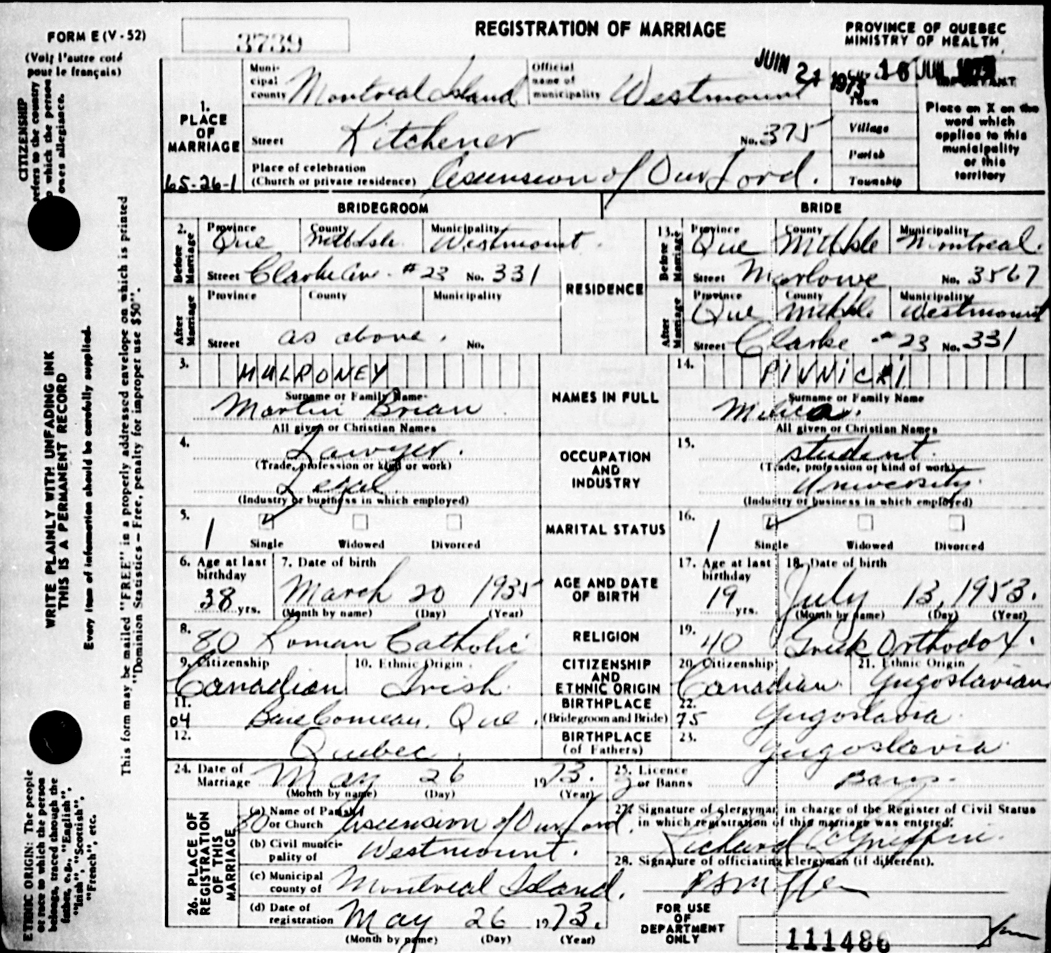 FORM E (V - 52)
3739
REGISTRATION OF MARRIAGE
PROVINCE OF QUEBEC
MINISTRY OF HEALTH
(Voir l'autre coté
pour le français)
JUIN 21 1973
16 JUL 1973
IMPORTANT
1.
PLACE
OF
MARRIAGE
65-26-1
Muni-
cipal
county Montreal Island
Official
name of
municipality Westmount
Street Kitchener No. 375
Place of celebration
(Church or private residence) Ascension of Our Lord.
Town
Village
Parish
Township
Place an X on the
word which
applies to this
municipality
or this
territory
BRIDEGROOM
BRIDE
2. Before Marriage
Province County Municipality
Que Mtl Isle Westmount.
Street Clarke Ave #23 No. 331
After Marriage
Province County Municipality
Street as above. No.
RESIDENCE
13. Before Marriage
Province County Municipality
Que Mtl Isle Montreal.
Street Marlowe No. 3567
After Marriage
Province County Municipality
Que Mtl Isle Westmount
Street Clarke #23 No. 331
3. MULRONEY
Surname or Family Name
Martin Brian
All given or Christian Names
NAMES IN FULL
14. PIVNICKI
Surname or Family Name
Milica.
All given or Christian Names
4. Lawyer.
(Trade, profession or kind of work)
Legal
(Industry or business in which employed)
OCCUPATION
AND
INDUSTRY
15. student.
(Trade, profession or kind of work)
University.
(Industry or business in which employed)
5. 1
Single Widowed Divorced
MARITAL STATUS
16. 1
Single Widowed Divorced
6. Age at last
birthday
38 yrs.
7. Date of birth
March 20 1935
(Month by name) (Day) (Year)
AGE AND DATE
OF BIRTH
17. Age at last
birthday
19 yrs.
18. Date of birth
July 13, 1953.
(Month by name) (Day) (Year)
8. 80 Roman Catholic
RELIGION
19. 40 Greek Orthodox.
9. Citizenship
Canadian
10. Ethnic Origin
Irish
CITIZENSHIP
AND
ETHNIC ORIGIN
20. Citizenship
Canadian
21. Ethnic Origin
Yugoslavian
11. 04 Baie Comeau, Que.
BIRTHPLACE
(Bridegroom and Bride)
22. 75 Yugoslavia
12. Quebec.
BIRTHPLACE
(of Fathers)
23. Yugoslavia
24. Date of
Marriage May 26 1973.
(Month by name) (Day) (Year)
25. Licence
or Banns Banns.
26. PLACE OF
REGISTRATION
OF THIS
MARRIAGE
(a) Name of Parish
or Church 80 Ascension of Our Lord.
(b) Civil munici-
pality of Westmount.
(c) Municipal
county of Montreal Island.
(d) Date of
registration May 26 1973.
(Month by name) (Day) (Year)
27. Signature of clergyman in charge of the Register of Civil Status
in which registration of this marriage was entered.
Richard
28. Signature of officiating clergyman (if different).
FOR USE
OF
DEPARTMENT
ONLY
111486
CITIZENSHIP
refers to the country
to which the person
owes allegiance.
WRITE PLAINLY WITH UNFADING INK
THIS IS A PERMANENT RECORD
Every item of information should be carefully supplied.
This form may be mailed "FREE" in a properly addressed envelope on which is printed
"Dominion Statistics – Free, penalty for improper use $50".
ETHNIC ORIGIN: The people
or race to which the person
belongs, traced through the
father, e.g., "English",
"Irish", "Scottish",
"French", etc.